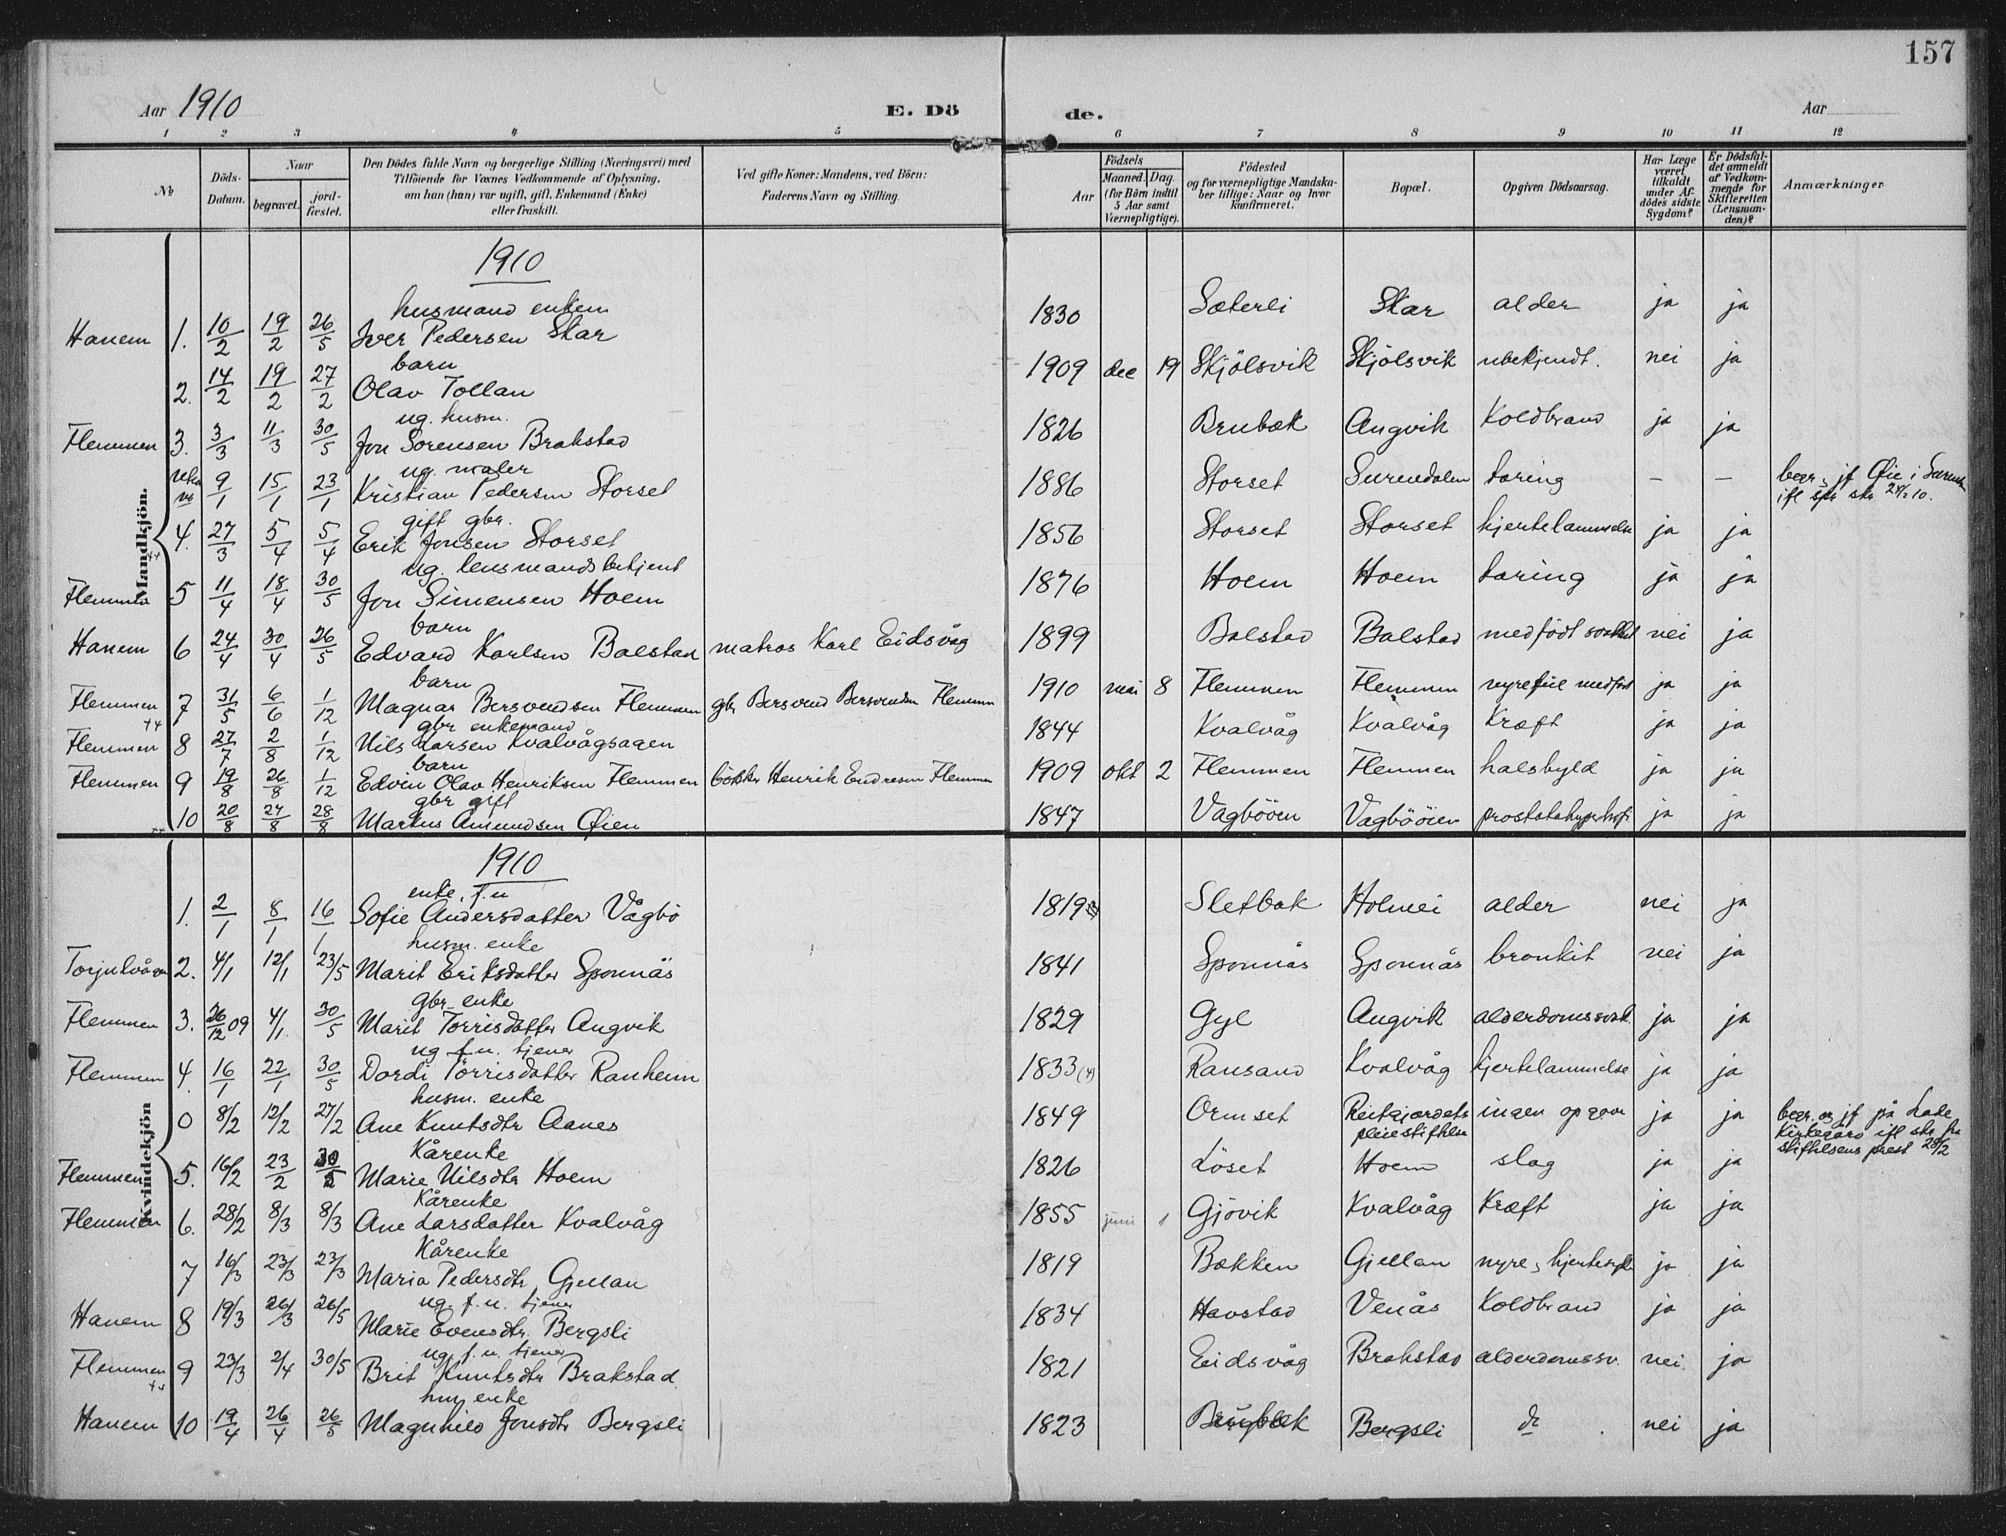 157
Aar 1910
E. Dö
de.
Aar
1 2 3 4 5 6 7 8 9 10 11 12
No
Döds-Datum.
Naar
begravet.
jord-fæstet.
Den Dödes fulde Navn og borgerlige Stilling (Næringsvei) med
Tilföiende for Voxnes Vedkommende af Oplysning,
om han (hun) var ugift, gift, Enkemand (Enke)
eller fraskilt.
Ved gifte Koner: Mandens, ved Börn:
Faderens Navn og Stilling.
Födsels
Aar
Maaned. Dag.
(for Börn indtil
5 Aar samt
Værnepligtige).
Födested
og for værnepligtige Mandska-
ber tillige: Naar og hvor
konfirmeret.
Bopæl.
Opgiven Dödsaarsag.
Har Læge
været
tilkaldt
under Af-
dödes sidste
Sygdom?
Er Dödsfal-
det anmeldt
af Vedkom-
mende for
Skifteretten
(Lensman-
den)?
Anmærkninger
Mandkjön.
1910
husmand enkem
Hanem 1. 10/2 19/2 26/5 Iver Pedersen Skar 1830 Sæterli Skar alder ja ja
barn
2. 14/2 19/2 27/2 Olav Tollan 1909 dec 19 Skjölsvik Skjölsvik ubekjendt. nei ja
ug. husm.
Flemmen 3. 3/3 11/3 30/5 Jon Sorensen Brakstad 1826 Brubæk Angvik Koldbrand ja ja
ug. maler
uten no 9/1 15/1 23/1 Kristian Pedersen Storset 1886 Storset Surendalen tæring — — begr. jf Øie i
ifl
gift gbr.
4. 27/3 5/4 5/4 Erik Jonsen Storset 1856 Storset Storset hjertelammelse ja ja
ug. lensmandsbetjent
Flemmen 5 11/4 18/4 30/5 Jon Simensen Hoem 1876 Hoem Hoem tæring ja ja
barn
Hanem 6 24/4 30/4 26/5 Edvard Karlsen Bolstad matros Karl Eidsvåg 1899 Bolstad Bolstad medfödt svakhet nei ja
barn
Flemmen 7 31/5 6/6 1/12 Magnar Bersvendsen Flemmen gbr Bersvend Bersvendsen Flemmen 1910 mai 8 Flemmen Flemmen medfödt ja ja
gbr enkemand
Flemmen 8 27/7 2/8 1/12 Nils Larsen Kvalvågsagen 1844 Kvalvåg Kvalvåg Kræft ja ja
barn
Flemmen 9 19/8 26/8 1/12 Edvin Olav Henriksen Flemmen bökker Henrik Endresen Flemmen 1909 okt 2 Flemmen Flemmen halsbyld ja ja
gbr gift
10 20/8 27/8 28/8 Markus Amundsen Øien 1847 Vagbööen Vagbööien prostatahypertrofi ja ja
Kvindekjön
1910
enke, f.u
1. 2/1 8/1 16/1 Sofie Andersdatter Vågbö 1819 Sletbak Holmei alder nei ja
husm. enke
Torjulvågen 2. 4/1 12/1 23/5 Marit Eriksdatter Sponnäs 1841 Sponnås Sponnås bronkit nei ja
gbr enke
Flemmen 3. 26/12 09 4/1. 30/5 Marit Torrisdatter Angvik 1829 Gyl Angvik alderdomssvak. ja ja
ug f.u. tjener
Flemmen 4. 16/1 22/1 30/5 Dordi Törrisdatter Ranheim 1833 (4) Ransand Kvalvåg hjertelammelse ja ja
husm. enke
0 8/2 12/2 27/2 Ane Knutsdtr Aanes 1849 Ormset Reitgjærdets pleiestiftelse ingen opgave ja ja begr. og jf på Lade
Kirkegård ifl skr fra
stiftelsens prest 28/2
Kårenke
Flemmen 5. 16/2 23/2 30/5 Marie Nilsdtr Hoem 1826 Löset Hoem slag ja ja
Kårenke
Flemmen 6. 28/2 8/3 8/3 Ane Larsdatter Kvalvåg 1855 juni 1 Gjövik Kvalvåg Kræft ja ja
Kårenke
7 16/3 23/3 23/3 Maria Pedersdtr Gjellan 1819 Bakken Gjellan nyre & hjertesygd ja ja
ug. f.u. tjener
Hanem 8 19/3 26/3 26/5 Marie Evensdtr. Bergsli 1834 Havstad Venås Koldbrand ja ja
ug. f.u. tjener
Flemmen 9 23/3 2/4 30/5 Brit Knutsdtr Brakstad 1821 Eidsvåg Brakstad alderdomssv. nei ja
hm enke
Hanem 10 19/4 26/4 26/5 Magnhild Jonsdtr Bergsli 1823 Bergsli do nei ja